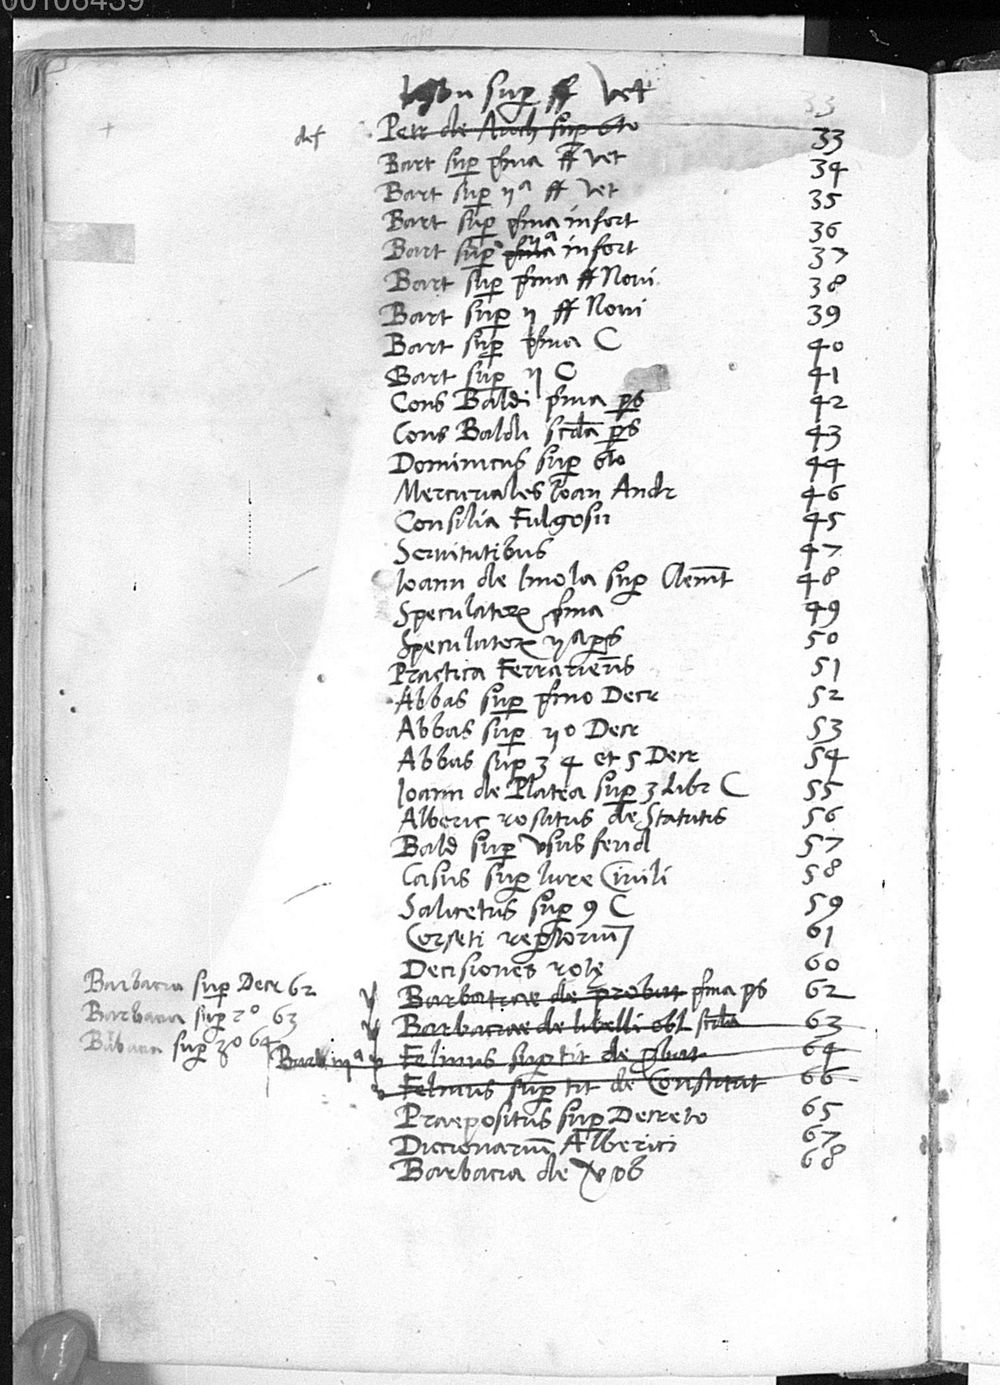 00106439
sup ff vet 33
def Petr de Anch sup 6to 33
Bart sup pma ff vet 34
Bart sup ijᵃ ff vet 35
Bart sup pma infort 36
Bart sup pma ijᵃ infort 37
Bart sup pma ff Noui 38
Bart sup ij ff Noui 39
Bart sup pma C 40
Bart sup ij C 41
Cons Baldi pma ps 42
Cons Baldi scda ps 43
Dominicus sup 6to 44
Mercuriales Ioan Andr 46
Consilia Fulgosii 45
Seruitutibus 47
Ioann de Imola sup Clemt 48
Speculator pma 49
Speculator ijᵃ ps 50
Practica Ferrariens 51
Abbas sup pmo Decr 52
Abbas sup ijo Decr 53
Abbas sup 3 4 et 5 Decr 54
Ioann de Platea sup 3 Libr C 55
Alberic rosatus de Statutis 56
Bald sup vsus feud 57
Casus sup Iure Ciuili 58
Salicetus sup 9 C 59
Corseti repstorium 61
Decisiones rote 60
Barbacia sup Decr 62
Barbatiae de probat pma ps 62
Barbacia sup 2º 63
Barbaciae de libelli obl scda 63
Babacia sup 3º 64
Barb iijᵃ Felinus sup tit de pbat 64
Felinus sup tit de Constitut 66
Praepositus sup Decreto 65
Diccionarium Alberici 67
Barbacia de 68